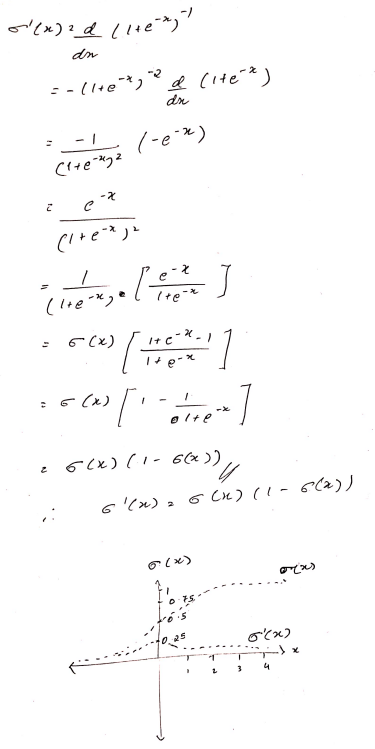 σ'(x) = d/dx (1+e^-x)^-1
= -(1+e^-x)^-2 d/dx (1+e^-x)
= -1/(1+e^-x)^2 (-e^-x)
= e^-x/(1+e^-x)^2
= 1/(1+e^-x) · [e^-x/1+e^-x]
= σ(x) [1+e^-x-1/1+e^-x]
= σ(x) [1 - 1/1+e^-x]
= σ(x) (1 - σ(x))
∴ σ'(x) = σ(x) (1 - σ(x))
σ(x)
σ(x)
1
0.75
0.5
0.25
σ'(x)
x
1 2 3 4